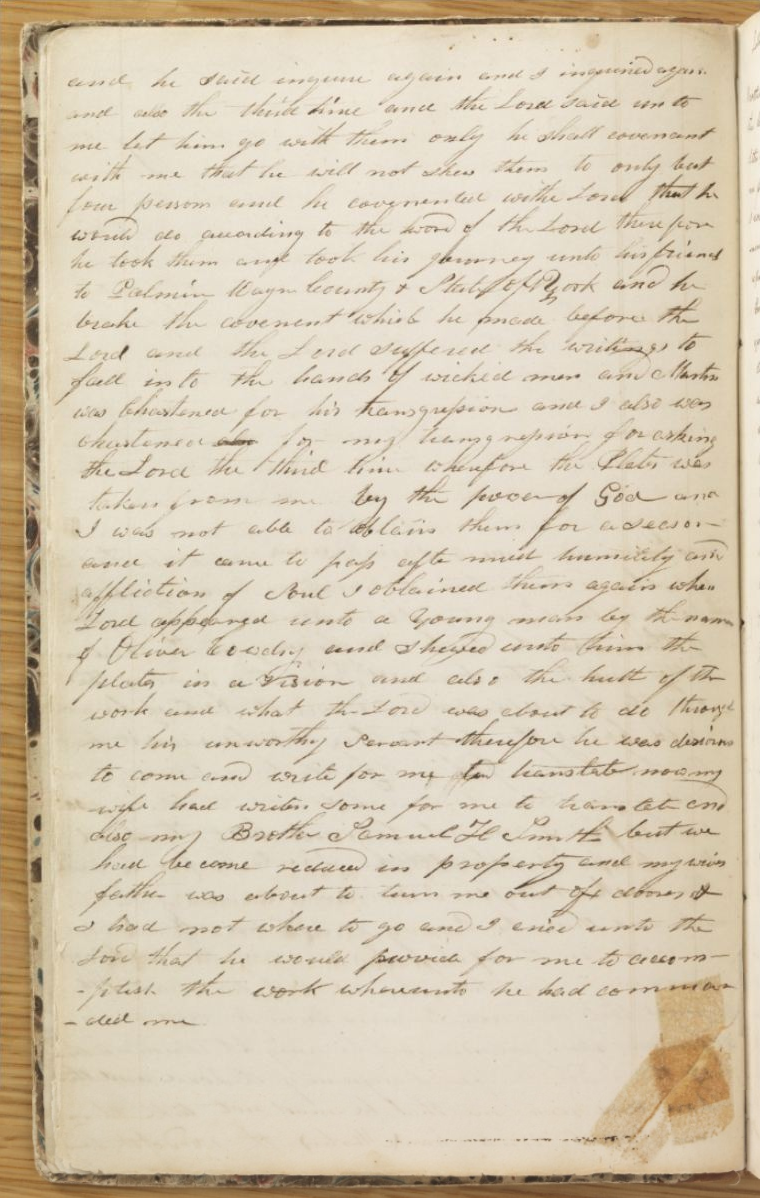 and he said inquire again and I inquired again
and also the third time and the Lord said unto
me let him go with them only he shall covenant
with me that he will not shew them to only but
four persons and he covenented withe Lord that he
would do according to the word of the Lord therefore
he took them and took his journey unto his friends
to Palmire Wayne County & State of N York and he
brake the covenent which he made before the
Lord and the Lord suffered the writings to
fall into the hands of wicked men and Martin
was Chastened for his transgression and I also was
chastened also for my transgression for asking
the Lord the third time wherefore the Plates was
taken from me by the power of God and
I was not able to obtain them for a season
and it came to pass afte much humility and
affliction of Soul I obtained them again when
Lord appeared unto a young man by the name
of Oliver Cowdry and shewed unto him the
plates in a vision and also the truth of the
work and what the Lord was about to do through
me his unworthy Servant therefore he was desirous
to come and write for me to translate now my
wife had writen some for me to translate and
also my Brothr Samuel H Smith but we
had become reduced in property and my wives
father was about to turn me out of doores &
I had not where to go and I cried unto the
Lord that he would provide for me to accom-
-plish the work whereunto he had comman
-ded me